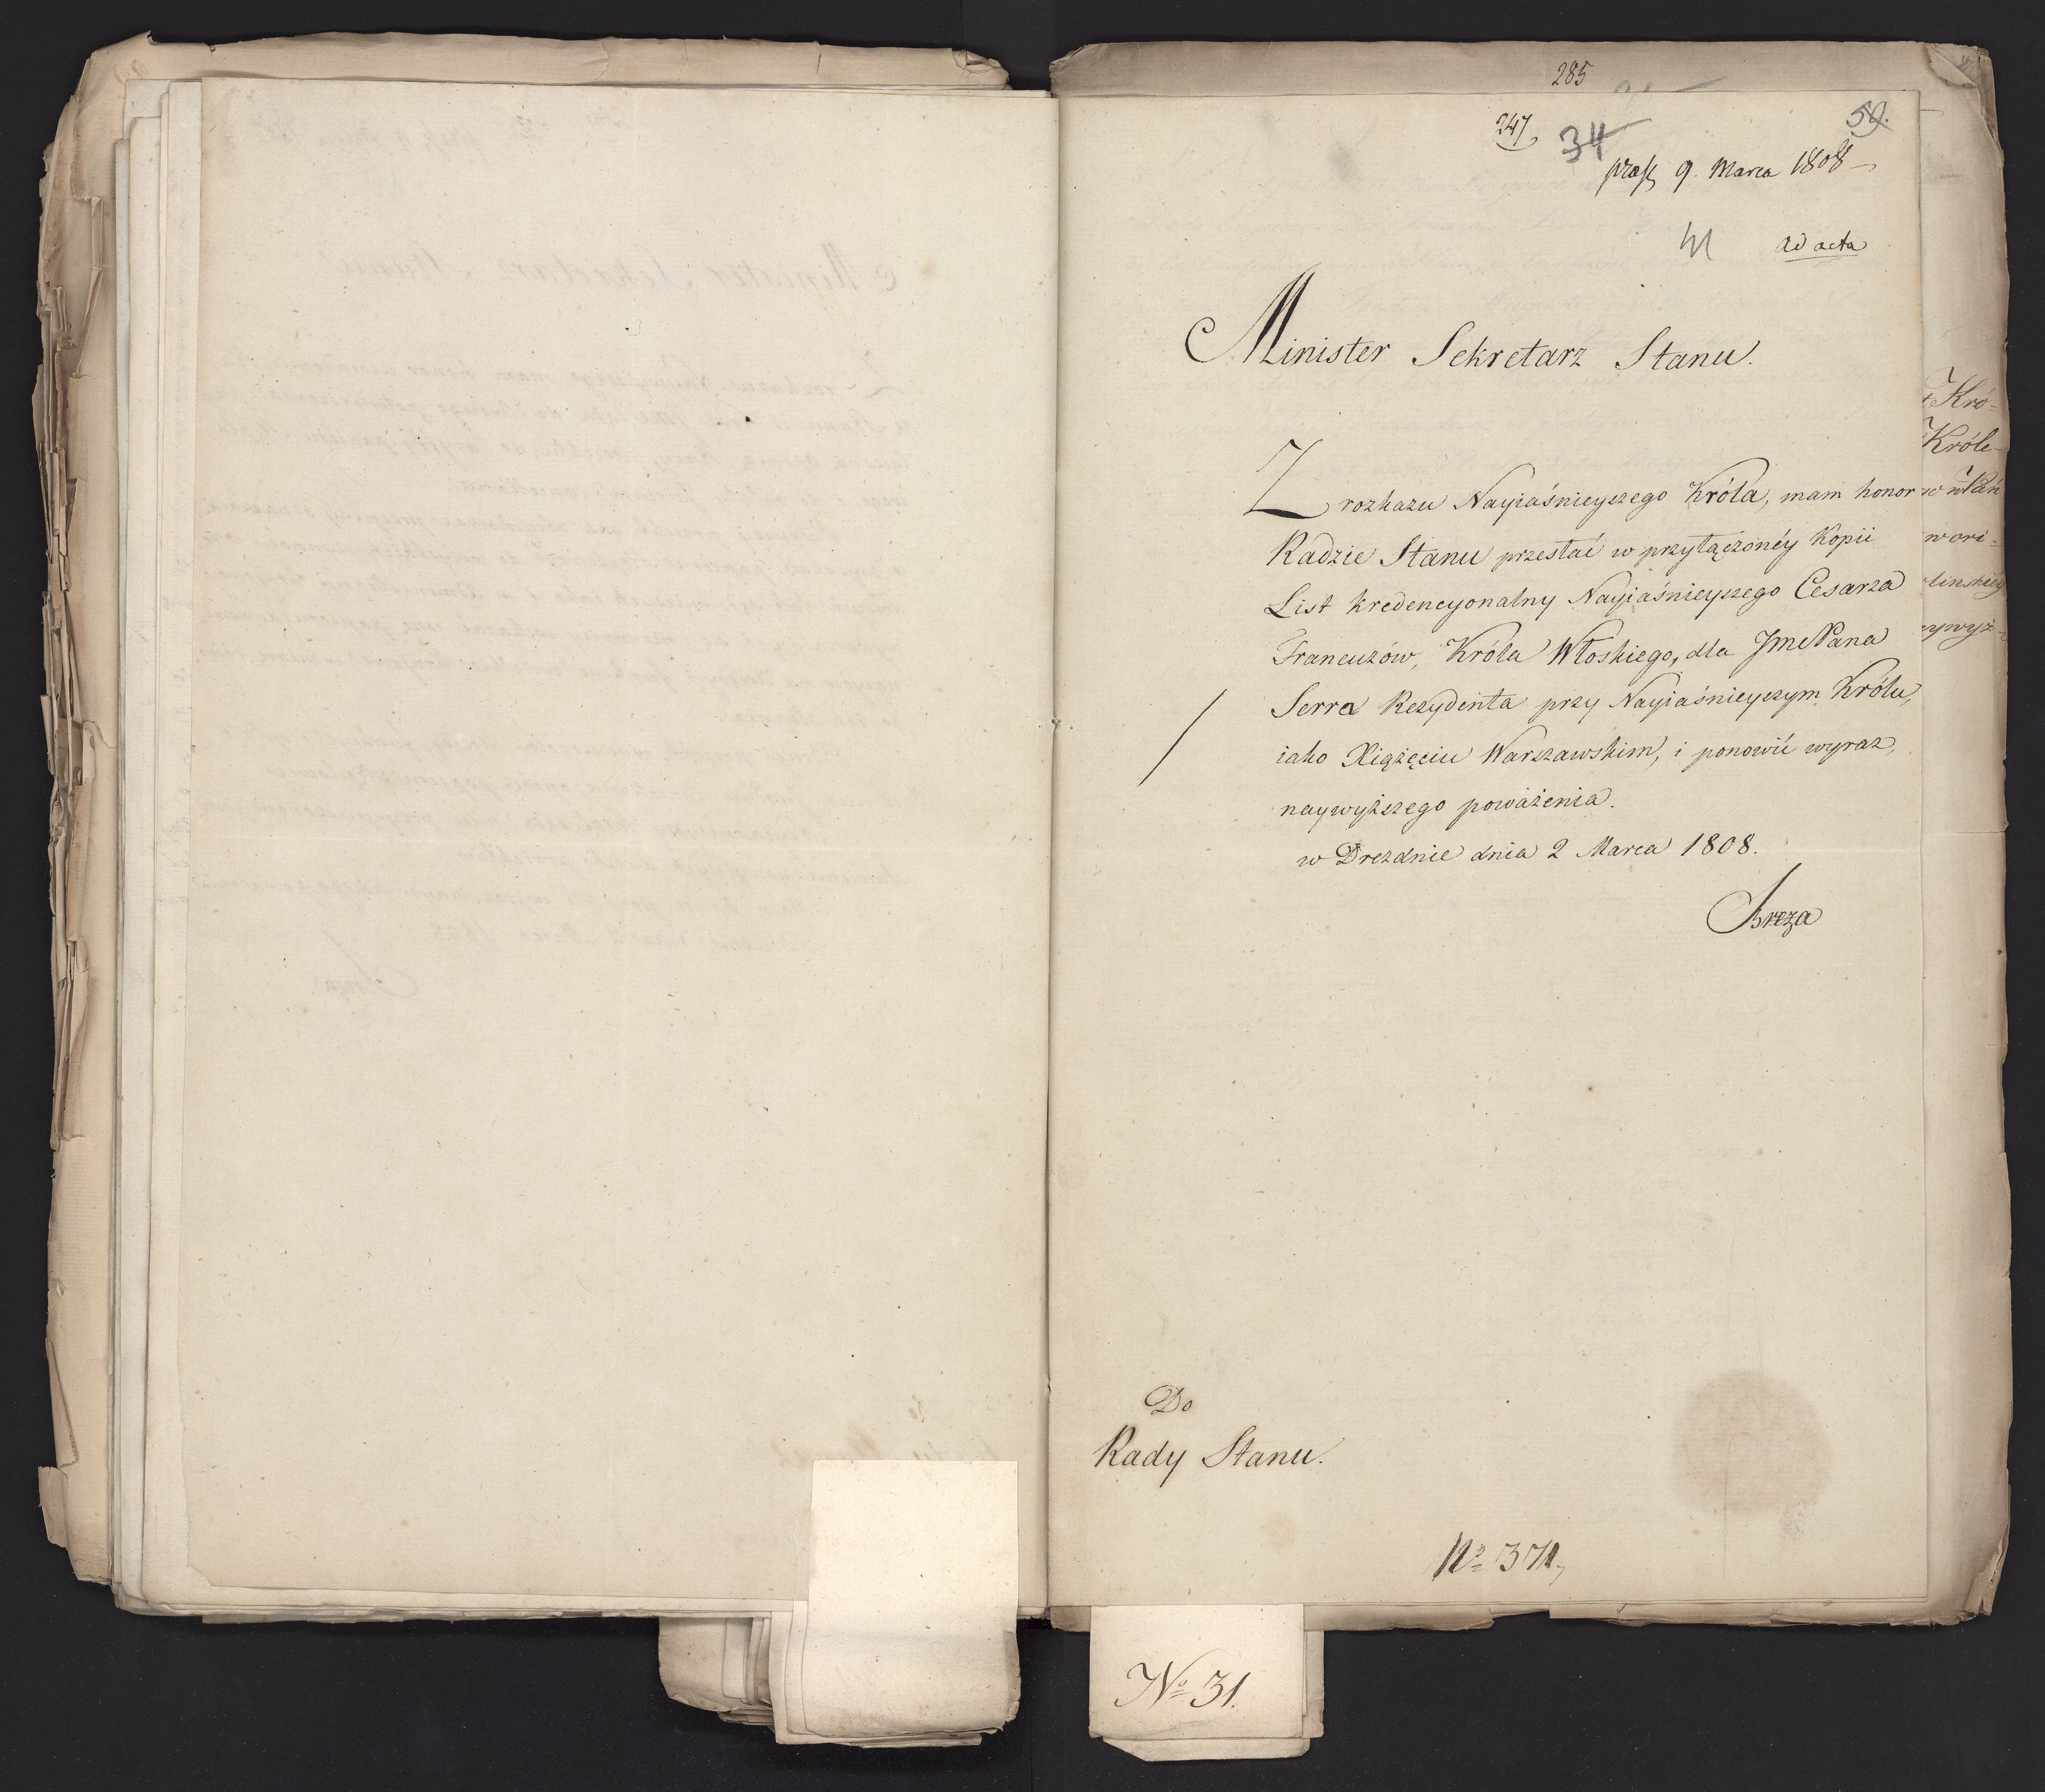 285
247
34
59.
praes 9. Marca 1808
41 ad acta
Minister Sekretarz Stanu.
Z rozkazu Nayiaśnieyszego Króla, mam honor
Radzie Stanu przesłać w przyłączonéy Kopii
List kredencyonalny Nayiaśnieyszego Cesarza
Francuzów, Króla Włoskiego, dla JmćPana
Serra Rezydenta przy Nayiaśnieyszym Królu,
iako Xiążęciu Warszawskim, i ponowić wyraz,
naywyższego poważenia.
w Dreznie dnia 2 Marca 1808.
Breza
Do
Rady Stanu.
No 371,
No 31.
Kró-
Króle-